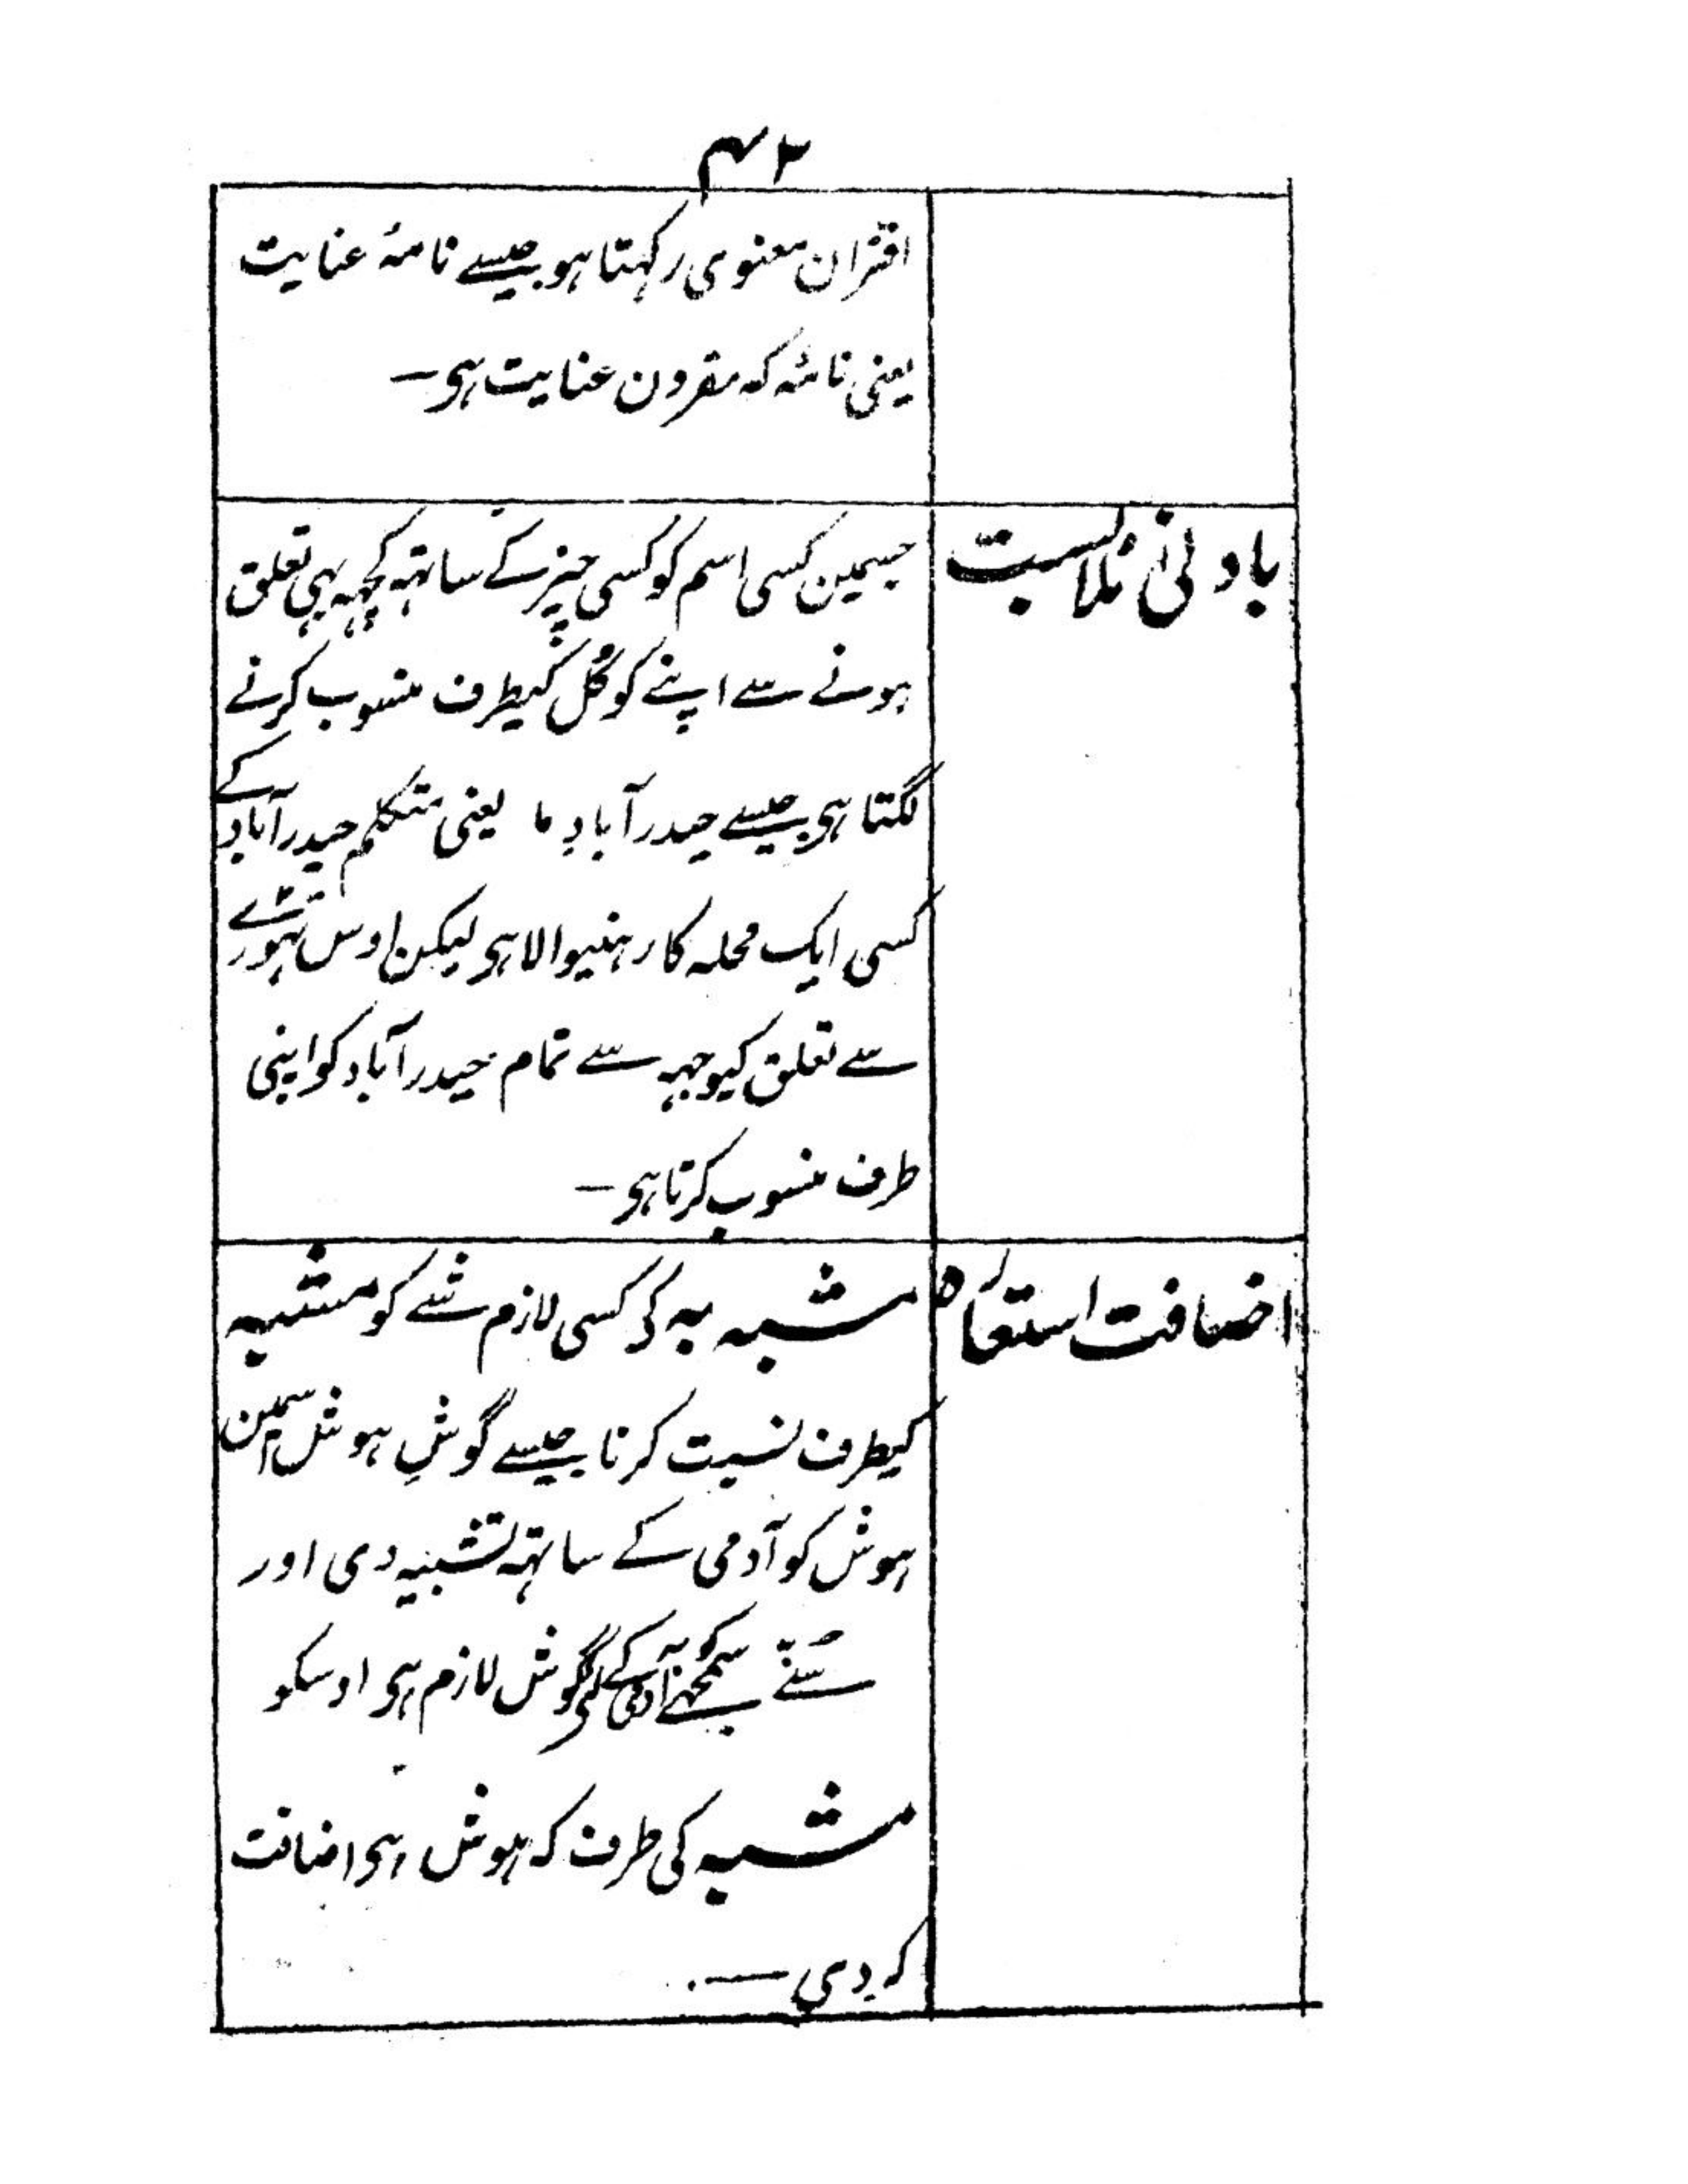 ۴۲
اقتران معنوی رکہتا ہو جیسے نامۂ عنایت
یعنی نامۂ کہ مقرون عنایت ہی۔
بادنیٰ ملابست
جسمین کسی اسم کو کسی چیز کے ساتہہ کچہہ بہی تعلق
ہونے سے اپنے کو کُل کیطرف منسوب کرنے
لگتا ہی جیسے حیدرآبادِ ما یعنی متکلم حیدرآباد کے
کسی ایک محلہ کا رہنیوالا ہی لیکن اوس تہوڑے
سے تعلق کیوجہہ سے تمام حیدرآباد کو اپنی
طرف منسوب کرتا ہی۔
اضافت استعارہ
مشبہ بہ کی کسی لازم شے کو مشبہ
کیطرف نسبت کرنا جیسے گوشِ ہوش اسمین
ہوش کو آدمی کے ساتہہ تشبیہ دی اور
سُننے سمجھنے کو آدمی کے لئے گوش لازم ہی اوسکو
مشبہ کی طرف کہ ہوش ہی اضافت
کردی ۔